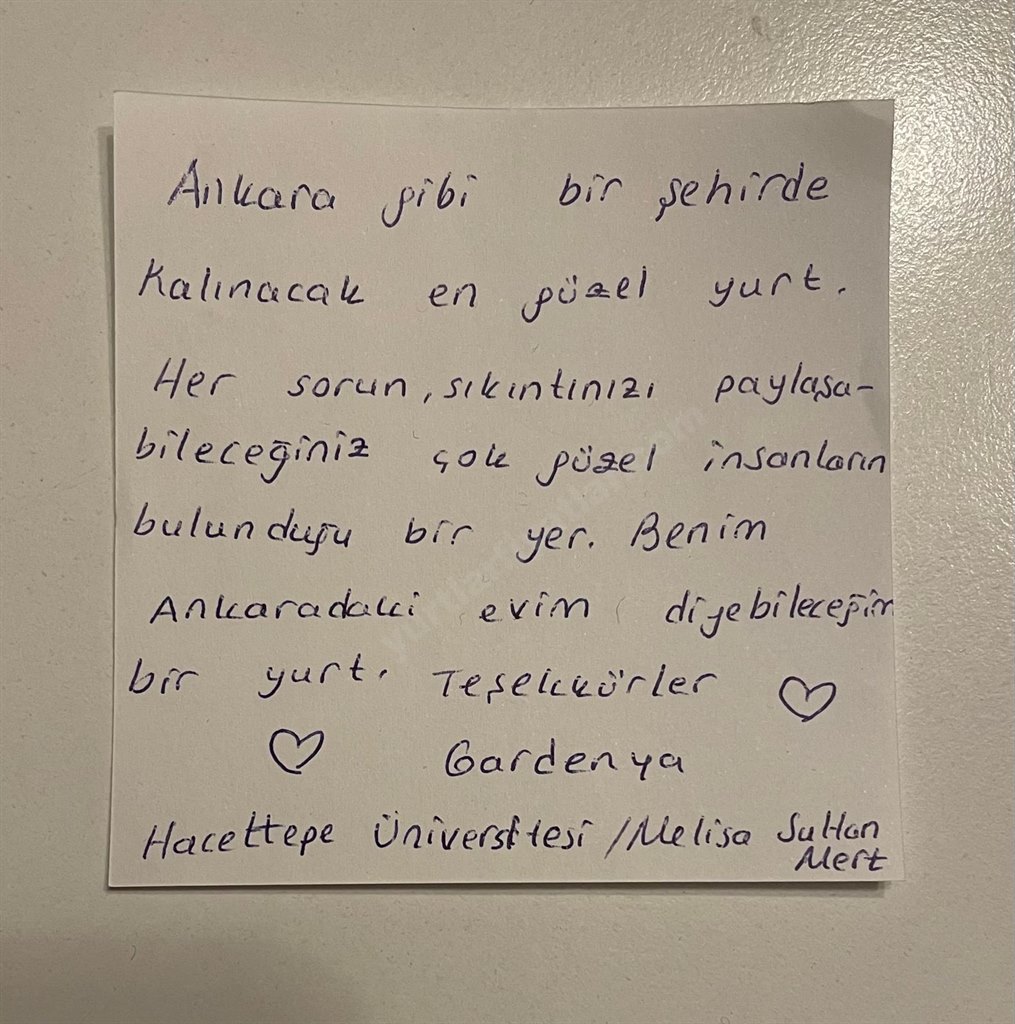 Ankara gibi bir şehirde
Kalınacak en güzel yurt.
Her sorun, sıkıntınızı paylaşa-
bileceğiniz çok güzel insanların
bulunduğu bir yer. Benim
Ankaradaki evim diyebileceğim
bir yurt. Teşekkürler ♡
♡ Gardenya
Hacettepe Üniversitesi / Melisa Sultan
Mert